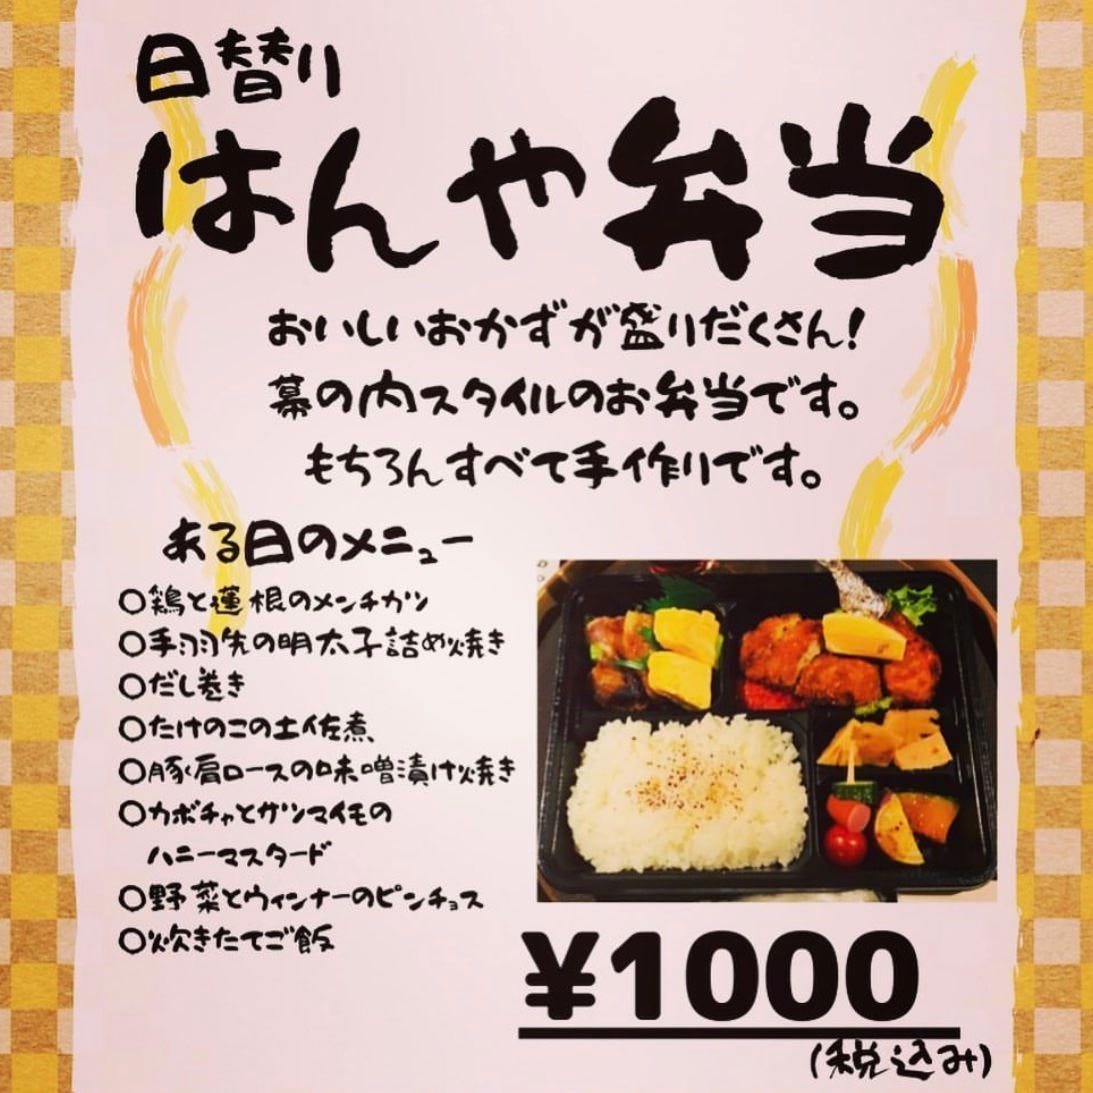 日替り
はんや弁当
おいしいおかずが盛りだくさん!
幕の内スタイルのお弁当です。
もちろんすべて手作りです。
ある日のメニュー
○鶏と蓮根のメンチカツ
○手羽先の明太子詰め焼き
○だし巻き
○たけのこの土佐煮
○豚肩ロースの味噌漬け焼き
○カボチャとサツマイモの
ハニーマスタード
○野菜とウィンナーのピンチョス
○炊きたてご飯
¥1000
(税込み)